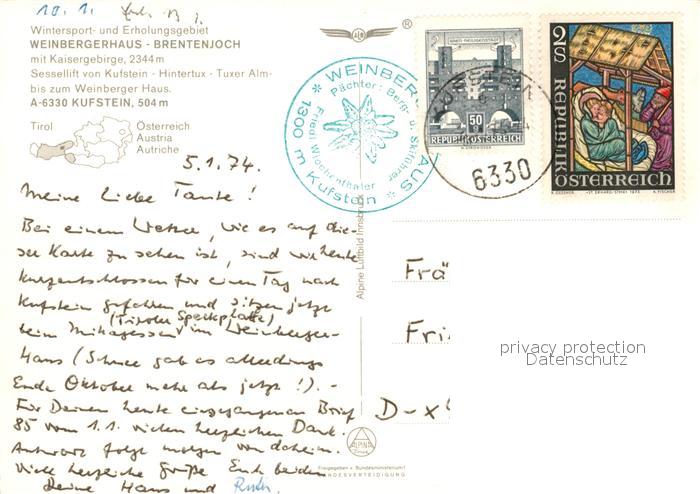 10. 1.
Wintersport- und Erholungsgebiet
WEINBERGERHAUS - BRENTENJOCH
mit Kaisergebirge, 2344 m
Sessellift von Kufstein - Hintertux - Tuxer Alm-
bis zum Weinberger Haus.
A-6330 KUFSTEIN, 504 m
Tirol
Österreich
Austria
Autriche
®
WEINBERG AUS
Pächter: Berg- u. Skiführer
Friedl Wlochenthaler
1300 m Kufstein
50 g
REPUBLIK ÖSTERREICH
6330
2S REPUBLIK
ÖSTERREICH
5.1.74.
Meine liebe Tante!
Bei einem Wetter, wie es auf die-
ser Karte zu sehen ist, sind wir heute
kurzentschlossen für einen Tag nach
Kufstein gefahren und sitzen jetzt
(Tiroler Speckplatte)
beim Mittagessen im Weinberger-
Haus (Schnee gab es allerdings
Ende Oktober mehr als jetzt!). -
Für Deinen heute eingegangenen Brief
85 vom 1.1. vielen herzlichen Dank.
Antwort folgt morgen von daheim.
Viele herzliche Grüße Euch beiden
Deine Hans und Ruth.
Alpine Luftbild Innsbruck
ALPINE
Freigegeben v. Bundesministerium f.
LANDESVERTEIDIGUNG
Frä
Fri
D-x
privacy protection
Datenschutz